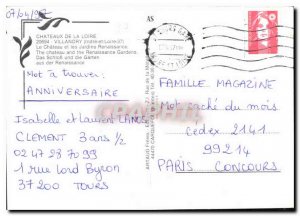 07/04/1997
CHATEAUX DE LA LOIRE
VILLANDRY (Indre-et-Loire-37)
Le Château et les Jardins Renaissance.
The château and the Renaissance Gardens.
Das Schloß und die Gärten
aus der Renaissance
Mot à trouver:
ANNIVERSAIRE
Isabelle et Laurent LANOS
CLEMENT 3 ans 1/2
02 47 28 70 99
1 rue Lord Byron
37 200 TOURS
AS
FAMILLE MAGAZINE
Mot caché du mois
cedex 2141
99214
PARIS CONCOURS